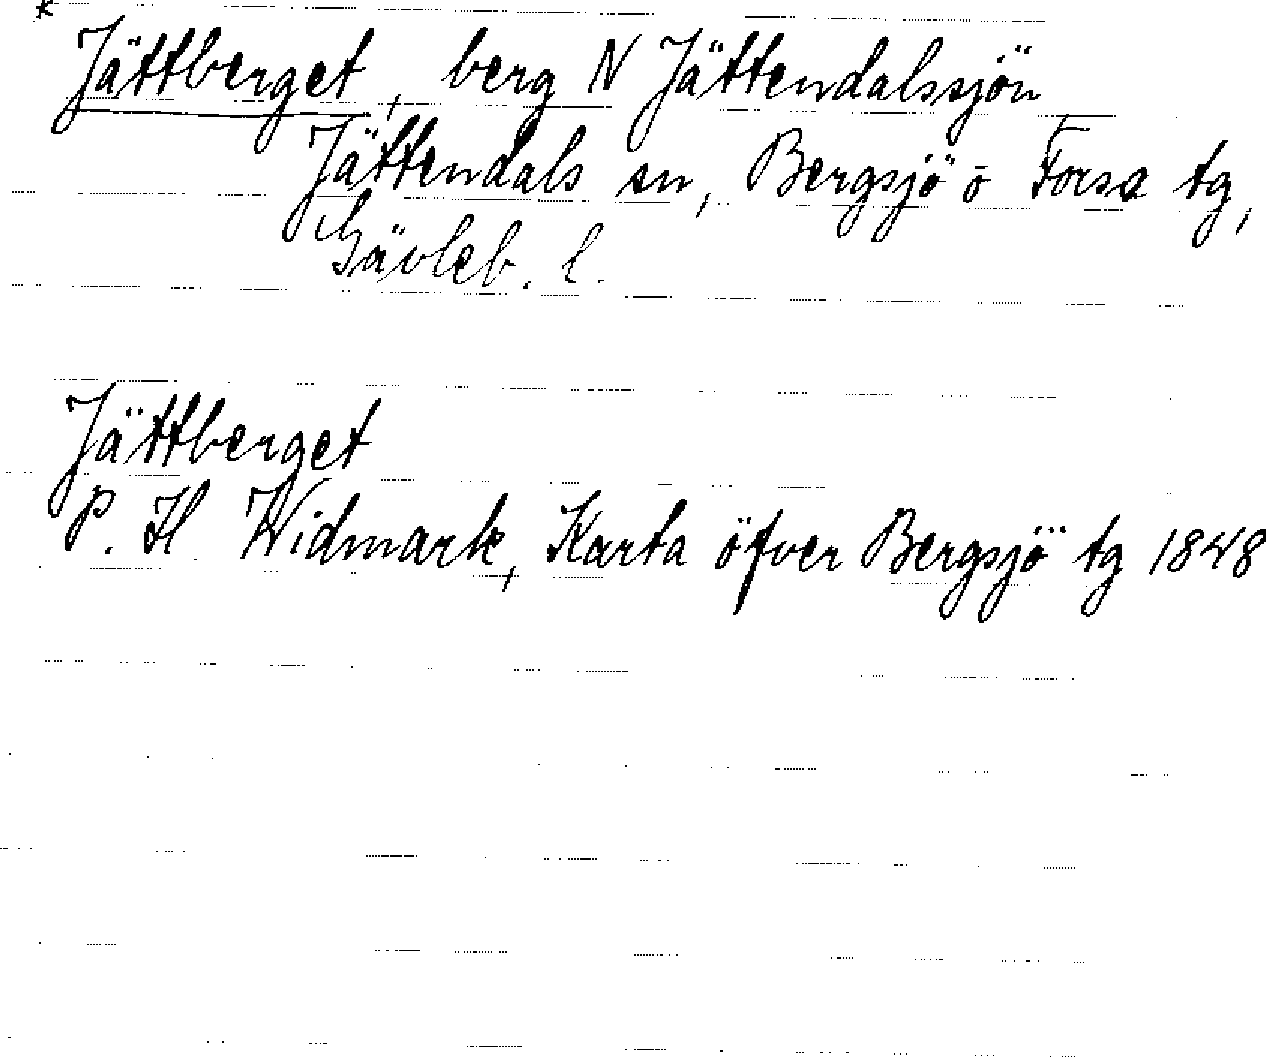 *
Jättberget, berg N Jättendalssjön
Jättendals sn, Bergsjö o Forsa tg,
Gävleb. l.
Jättberget
P. H. Widmark, Karta öfver Bergsjö tg 1848